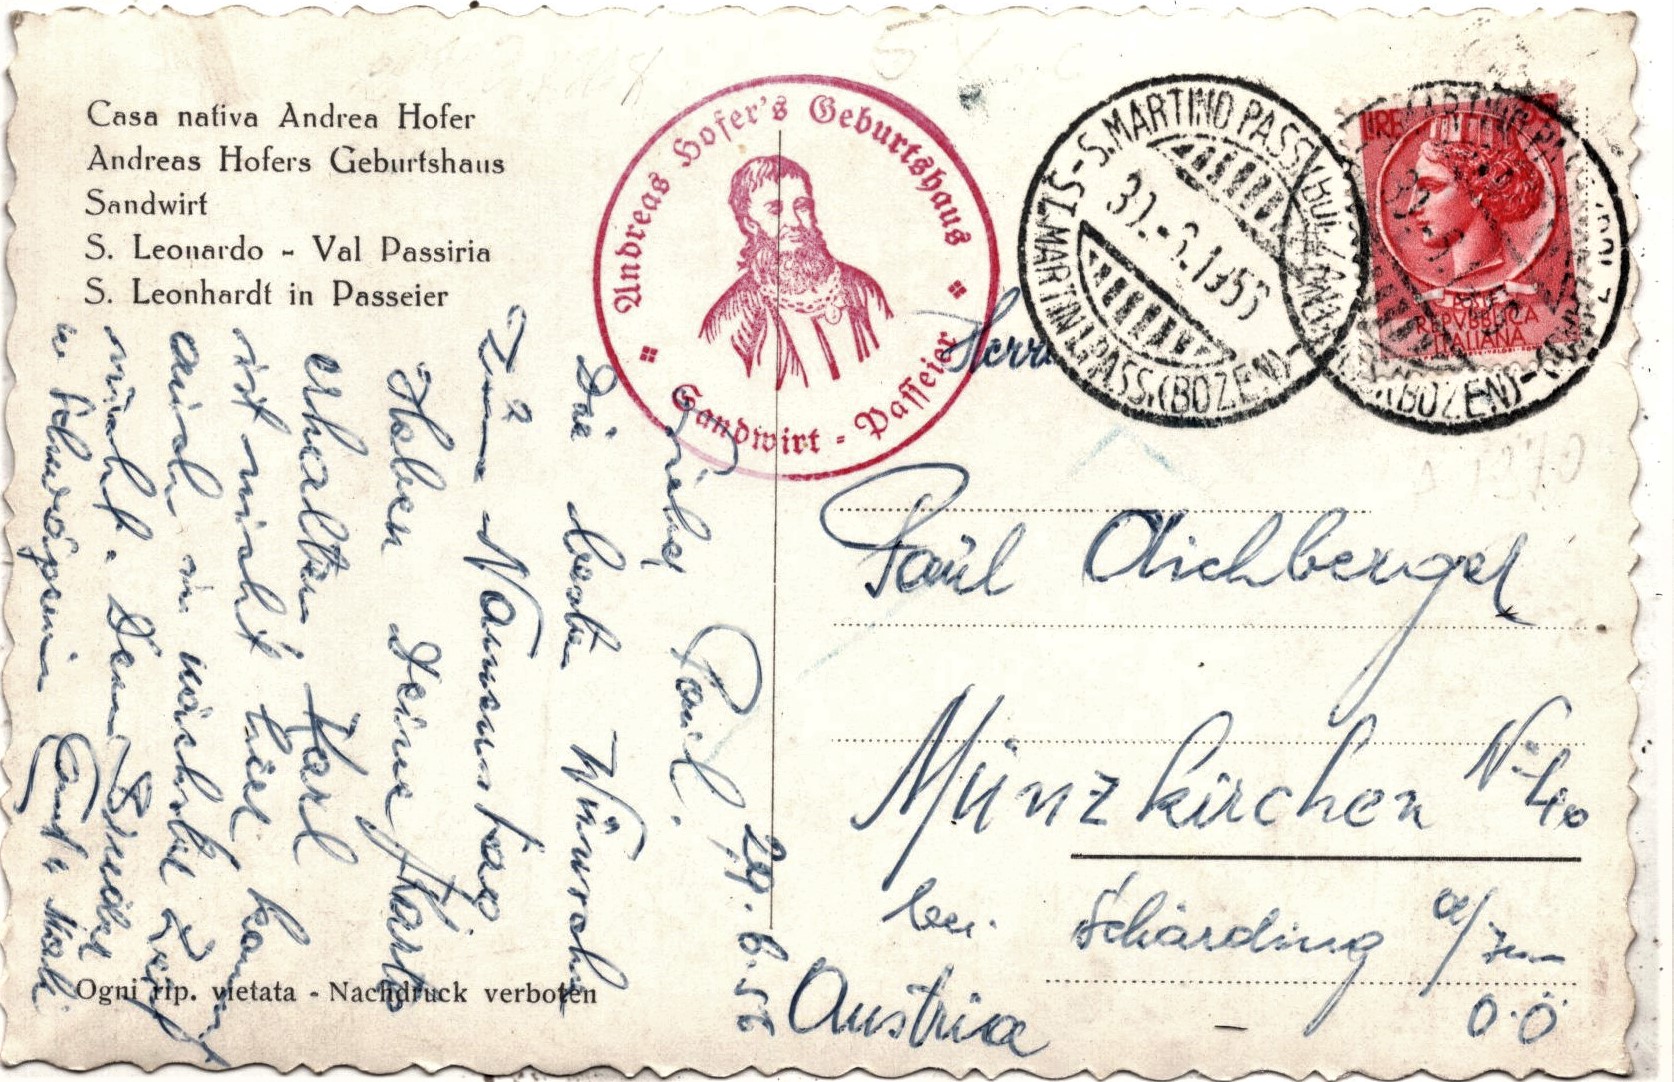 Casa nativa Andrea Hofer
Andreas Hofers Geburtshaus
Sandwirt
S. Leonardo - Val Passiria
S. Leonhardt in Passeier
Andreas Hofer's Geburtshaus
Sandwirt - Passeier
S. MARTINO PASS. (BOLZANO)
ST. MARTIN I. PASS. (BOZEN)
LIRE
POSTE
REPVBBLICA
ITALIANA
29. 6. 56
Lieber Paul.
Die besten Wünsche
Zum Namenstag
Haben Deine Karte
erhalten Karl
ist nicht hier kann
auch in nächster Zeit
nicht. Dein Bruder
u. Schwägerin
Herrn
Paul Aichberger
Münzkirchen No 40
bei Schärding a/Inn
Austria O.Ö
Ogni rip. vietata - Nachdruck verboten